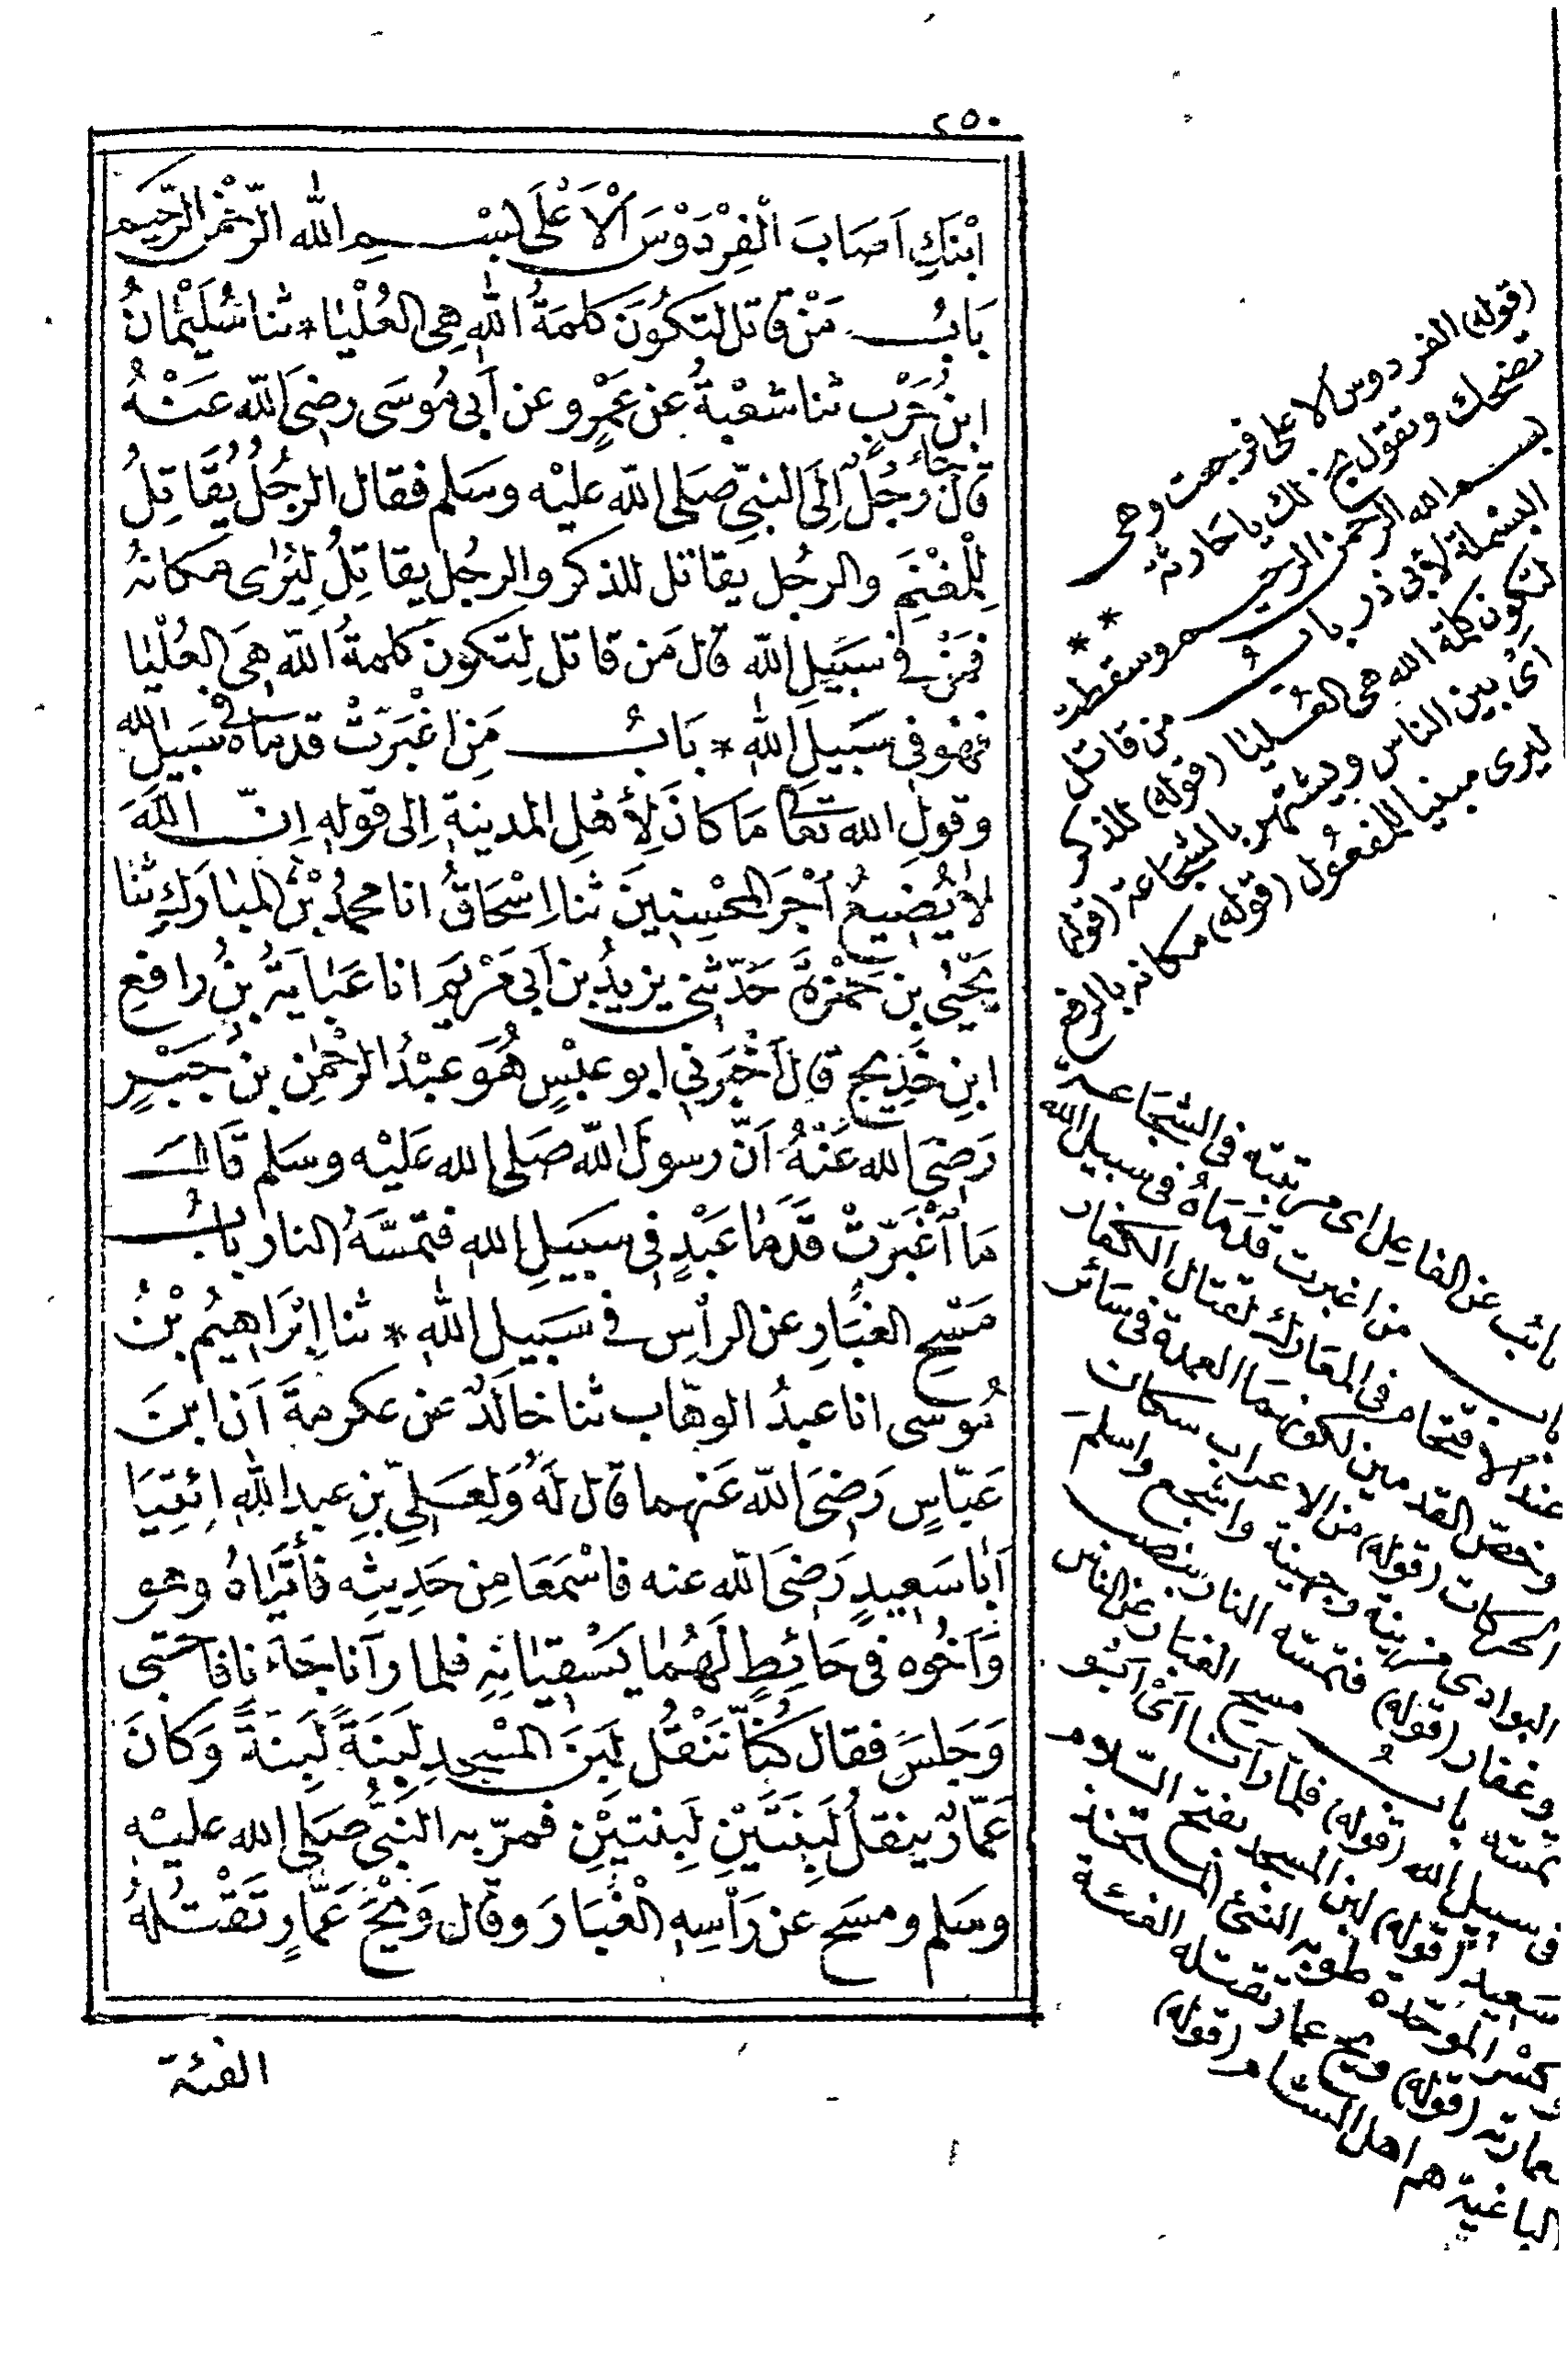 ٢٥٠
ابْنَكِ اَصَابَ الْفِرْدَوْسَ الْاَعْلَى بسْمِ اللّٰه الرّحْمن الرّحيم
بَابُ مَنْ قَاتل لتَكُونَ كلمَةُ اللّٰهِ هِى العُلْيَا * ثنا سُلَيْمَانُ
ابنُ حَرْبٍ ثنا شعْبةُ عن عَمْرٍو عن اَبى مُوسَى رضِىَ اللّٰه عَنْهُ
قال جَاءَ رَجُلٌ اِلَى النبىّ صَلى اللّٰه عليْه وسَلم فقال الرجُلُ يُقَاتِلُ
لِلْمَغْنَمِ والرجُل يقاتل للذكر والرجُل يقاتِلُ لِيُرٰى مَكانُهُ
فمَنْ فى سبَيلِ اللّٰه قال مَن قاتل لِتَكونَ كلمةُ اللّٰه هِىَ العُلْيَا
فهْو فى سَبيلِ اللّٰهِ * بَابُ مَنِ اغْبَرَّتْ قدمَاهُ فى سَبيلِ اللّٰه
وقولِ اللّٰه تعَالى مَا كانَ لِأهْلِ المدينةِ اِلى قولهِ اِنّ اللّٰهَ
لاَ يُضيعُ اَجْرَ المحْسِنينَ ثنا اِسْحَاقُ انا محمدُ بْنُ المبَارَكِ ثنا
يَحْيٰى بن حَمْزةَ حَدّثنى يزيدُ بن اَبى مَرْيَم انا عَبَايَةُ بنُ رافعِ
ابنِ خَدِيجٍ قال اَخْبَرنى ابو عبْسٍ هُوَ عبْدُ الرحْمٰنِ بنُ جَبْرٍ
رَضىَ اللّٰه عَنْهُ اَنّ رسولَ اللّٰه صَلى اللّٰه عَليْه وسَلم قَالَ
مَا اغْبَرّتْ قَدَمَا عَبْدٍ فى سبَيلِ اللّٰهِ فتمسَّهُ النار بَابُ
مَسْحِ الغبَارِ عن الرأسِ فى سَبيلِ اللّٰهِ * ثنا اِبْرَاهِيمُ بْنُ
مُوسَى انا عبدُ الوهّاب ثنا خالدٌ عن عكرمةَ اَنّ ابنَ
عَبّاسٍ رَضىَ اللّٰه عَنهما قال لَهُ وَلِعَلىِّ بنِ عبدِ اللّٰهِ ائتِيَا
اَبَا سَعيدٍ رَضىَ اللّٰه عنه فاسْمَعَا مِن حَدِيثِه فأتَيَاهُ وهو
وَاَخُوه فى حَائطٍ لَهُمَا يَسْقِيَانِهِ فلما رآنا جَاءَنا فاحْتبى
وَجَلسَ فقال كُنّا نَنْقُل لَبِنَ المسْجِدِ لَبِنَةً لَبِنَةً وَكانَ
عَمّارٌ ينقلُ لَبِنَتَيْنِ لَبِنتيْنِ فمرّ به النبىُّ صَلى اللّٰه عليْه
وسَلم ومسَح عن رَأسِهِ الغُبَارَ وقال وَيْحَ عَمّارٍ تَقْتُلهُ
الفئة
(قوله) الفردوس الاعلى فرجعت وهى
تضحك وتقول بخ بخ لك يا حارثة * *
بسم اللّٰه الرحمن الرحيم وسقطت
البسملة لأبى ذر باب من قاتل
لتكون كلمة اللّٰه هى العليا (قوله) للذكر
اى بين الناس ويشتهر بالشجاعة (قوله)
ليرى مبنيا للمفعول (قوله) مكانه بالرفع
نائب عن الفاعل اى مرتبته فى الشجاعة
باب من اغبرت قدماه فى سبيل اللّٰه
عند الاقتحام فى المعارك لقتال الكفار
وخصّ القدمين لكونهما العمدة فى سائر
الحركات (قوله) من الاعراب سكان
البوادى مزينة وجهينة واشجع واسلم
وغفار (قوله) فتمسّه النار بنصب
تمسّه باب مسح الغبار عن الناس
فى سبيل اللّٰه (قوله) فلما رآنا اى ابو
سَعيد (قوله) لبن المسجد بفتح اللام
وكسر الموحّدة طوبه النىّ المتخذ
لعمارته (قوله) ويح عمار تقتله الفئة
الباغية هم اهل الشام (قوله)